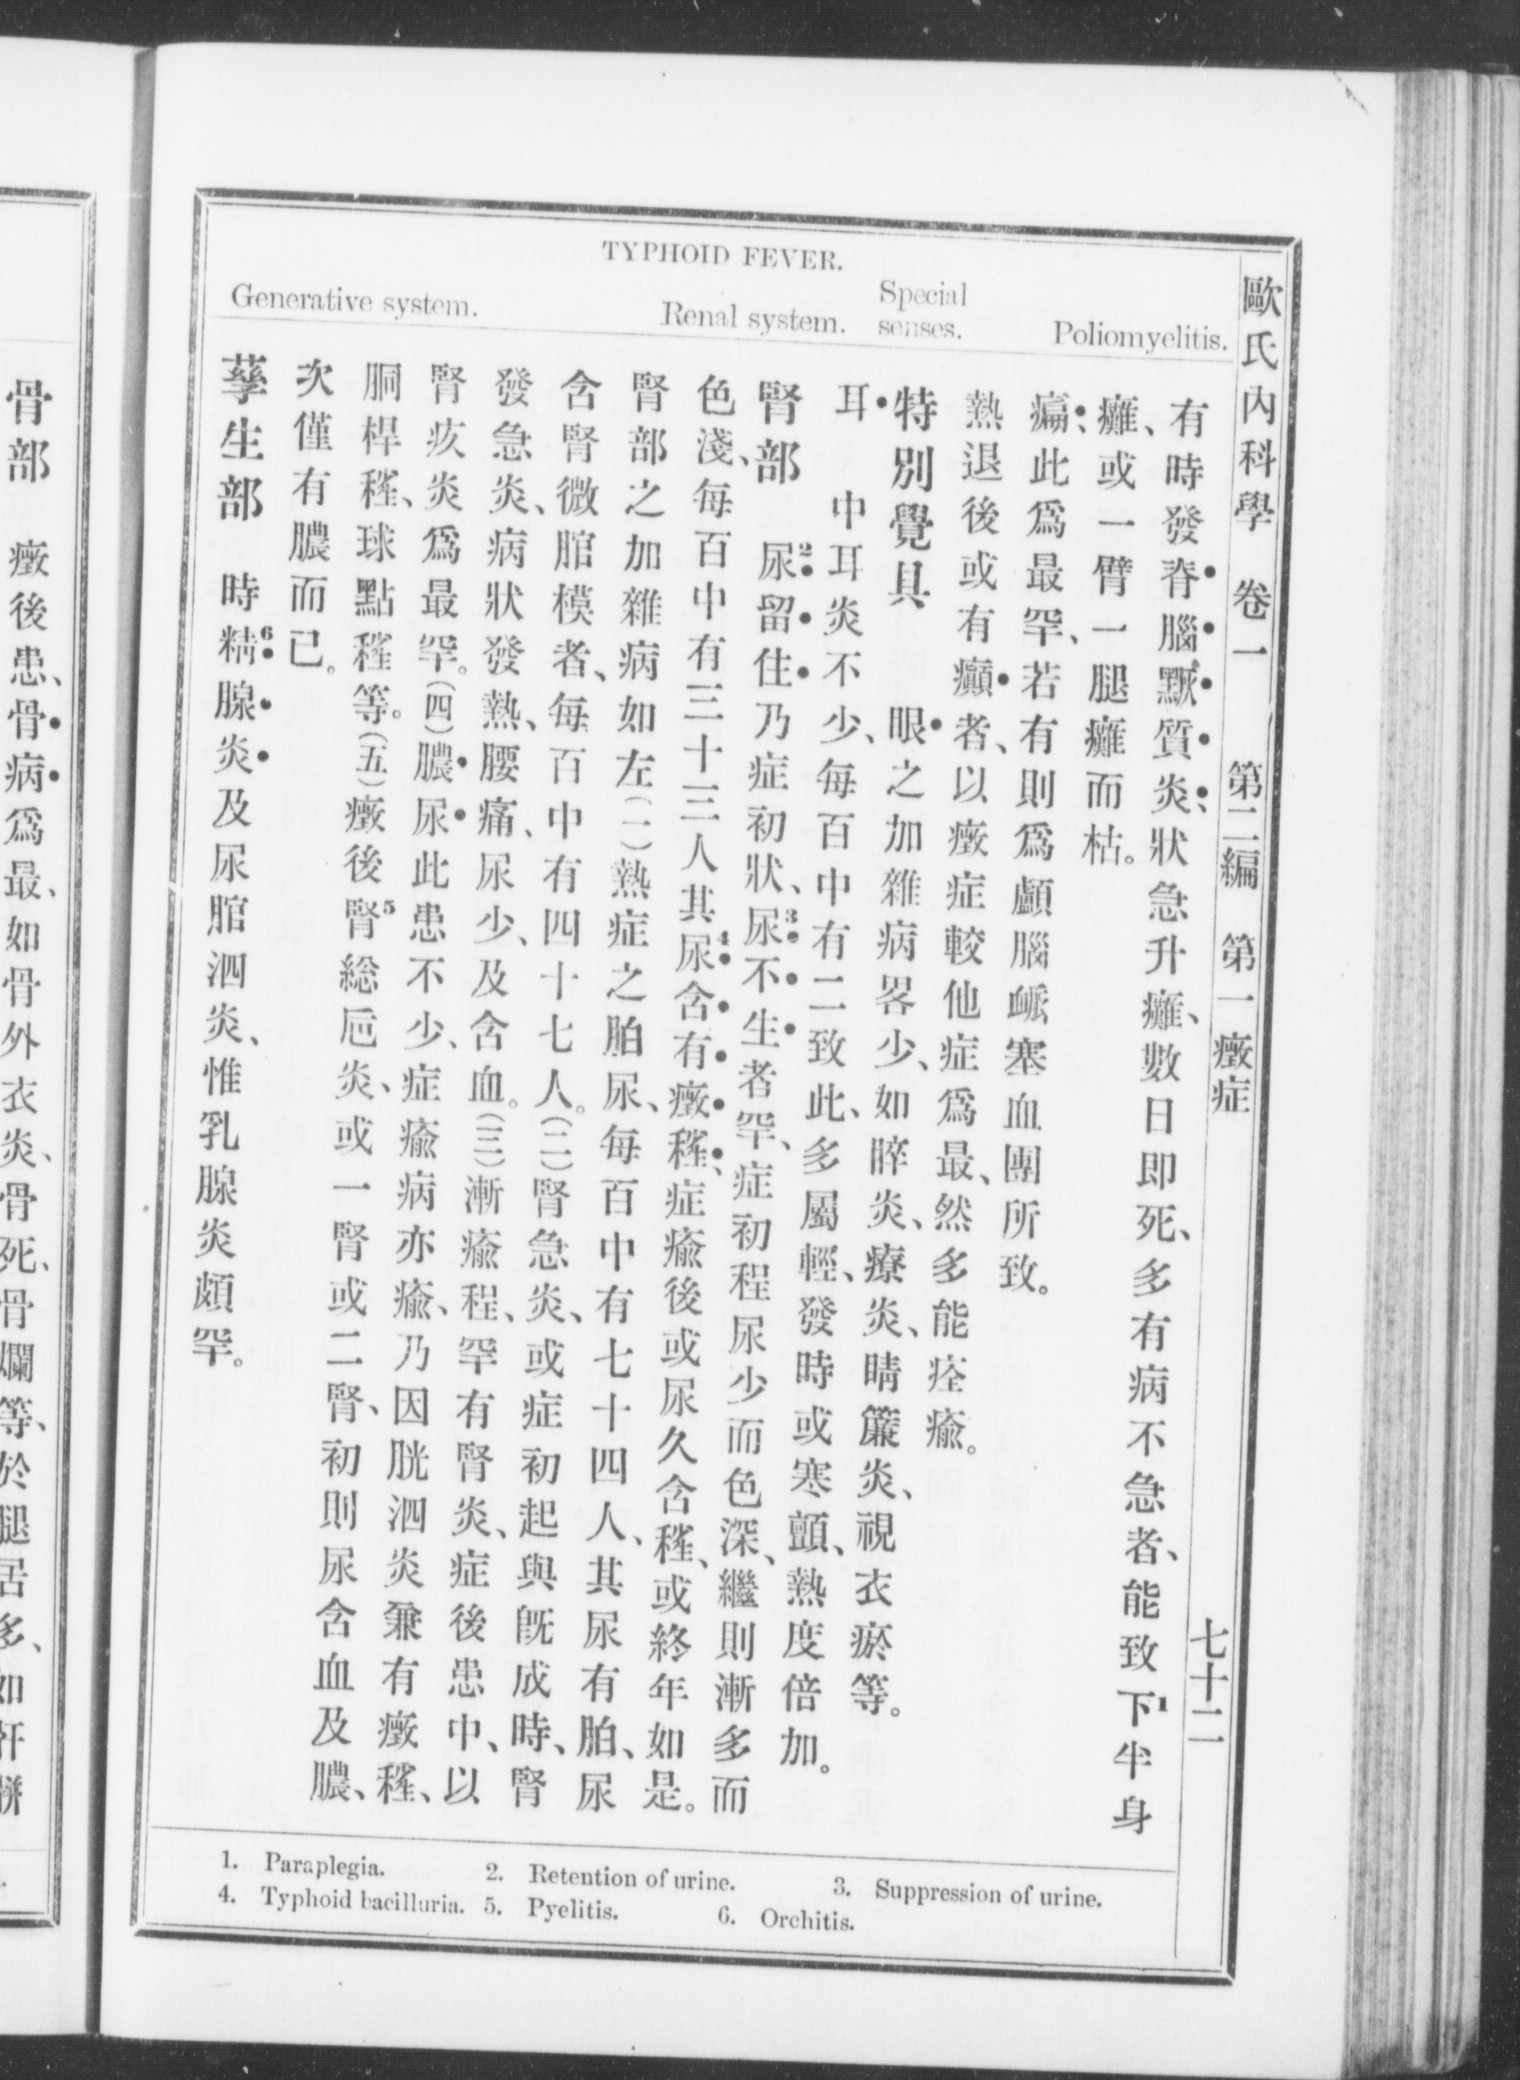 TYPHOID FEVER.
Poliomyelitis.
Special senses.
Renal system.
Generative system.
歐氏內科學 卷一 第二編 第一癥症 七十二
有時發脊腦顠質炎、狀急升癱、數日即死、多有病不急者、能致下1半身
癱、或一臂一腿癱而枯。
癟、此爲最罕、若有則爲顱腦衇塞血團所致。
熱退後或有癲者、以癥症較他症爲最、然多能痊瘉。
特別覺具 眼之加雜病畧少、如睟炎、療炎、睛簾炎、視衣瘀等。
耳 中耳炎不少、每百中有二致此、多屬輕、發時或寒顫、熱度倍加。
腎部 尿2留住乃症初狀、尿3不生者罕、症初程尿少而色深、繼則漸多而
色淺、每百中有三十三人其尿4含有癥䅵、症瘉後或尿久含䅵、或終年如是。
腎部之加雜病如左(一)熱症之胉尿、每百中有七十四人、其尿有胉、尿
含腎微腤模者、每百中有四十七人。(二)腎急炎、或症初起與旣成時、腎
發急炎、病狀發熱、腰痛、尿少、及含血。(三)漸瘉程、罕有腎炎、症後患中、以
腎疢炎爲最罕。(四)膿尿此患不少、症瘉病亦瘉、乃因胱泗炎兼有癥䅵、
胴桿䅵、球點䅵等。(五)癥後腎5総巵炎、或一腎或二腎、初則尿含血及膿、
次僅有膿而已。
孳生部 時精6腺炎及尿腤泗炎、惟乳腺炎頗罕。
1. Paraplegia. 2. Retention of urine. 3. Suppression of urine.
4. Typhoid bacilluria. 5. Pyelitis. 6. Orchitis.
骨部 癥後患、骨病爲最、如骨外衣炎、骨死、骨爛等、於腿居多、如